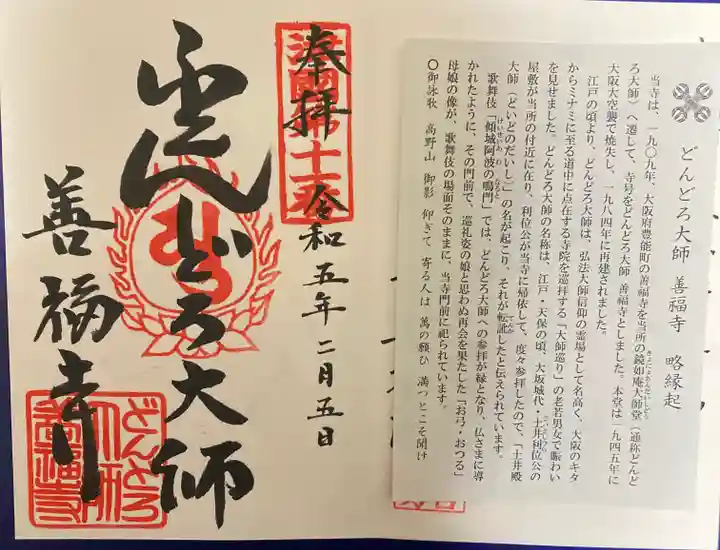 どんどろ大師 善福寺 略縁起
当寺は、一九〇九年、大阪府豊能町の善福寺を当所の鏡如庵大師堂(通称どんど
きょうにょあんだいしどう
ろ大師)へ遷して、寺号をどんどろ大師 善福寺としました。本堂は一九四五年に
大阪大空襲で焼失し、一九八四年に再建されました。
江戸の頃より、どんどろ大師は、弘法大師信仰の霊場として名高く、大阪のキタ
からミナミに至る道中に点在する寺院を巡拝する「大師巡り」の老若男女で賑わい
を見せました。どんどろ大師の名称は、江戸・天保の頃、大坂城代・土井利位公の
屋敷が当所の付近に在り、利位公が当寺に帰依して、度々参拝したので、「土井殿
大師(どいどのだいし)」の名が起こり、それが転訛したと伝えられています。
てんか
歌舞伎「傾城阿波の鳴門」では、どんどろ大師への参拝が縁となり、仏さまに導
けいせいあわ なると
かれたように、その門前で、巡礼姿の娘と思わぬ再会を果たした「お弓・おつる」
母娘の像が、歌舞伎の場面そのままに、当寺門前に祀られています。
〇御詠歌 高野山 御影 仰ぎて 寄る人は 萬の願ひ 満つとこそ聞け
奉拝
令和五年二月五日
どろ大師
善福寺
どんどろ
大師
善福寺